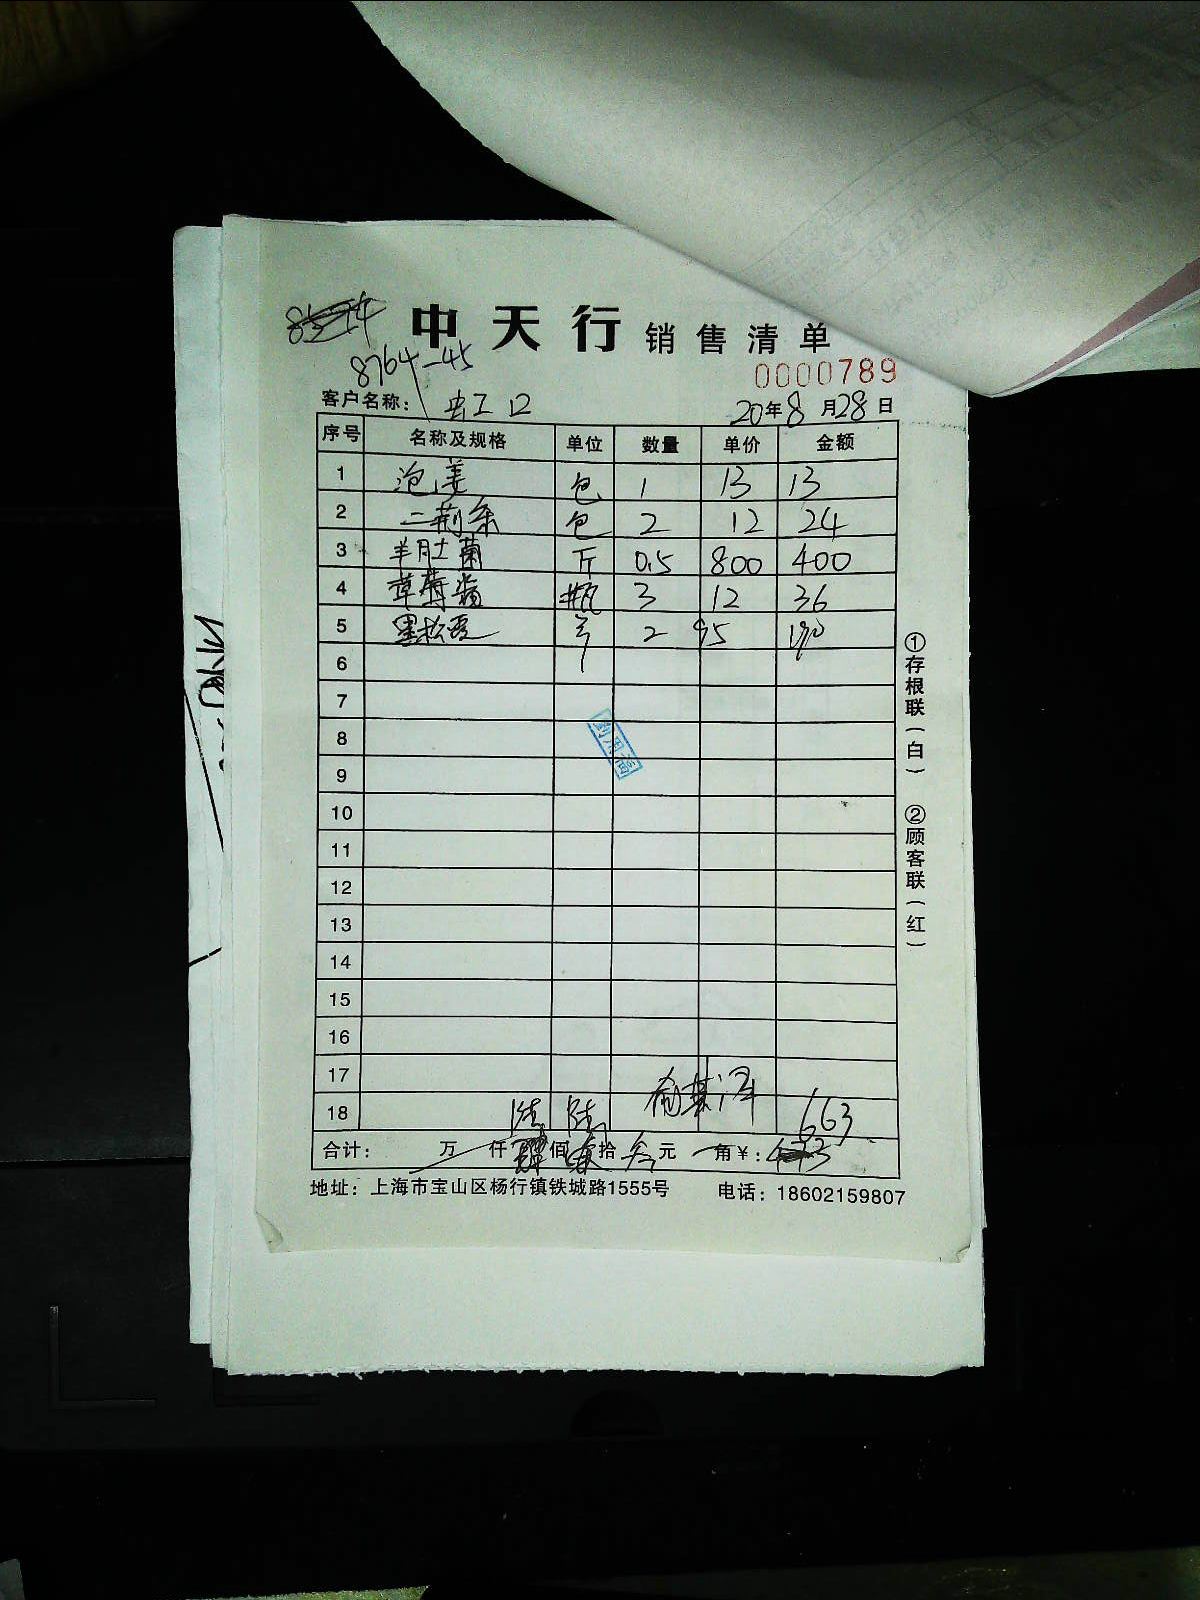 中天行 销售清单
8764-45
0000789
客户名称: 虹口 20年8月28日
序号 名称及规格 单位 数量 单价 金额
1 泡姜 包 1 13 13
2 二荆条 包 2 12 24
3 羊肚菌 斤 0.5 800 400
4 草莓酱 瓶 3 12 36
5 黑松露 2 95 190
6
7
8
9
10
11
12
13
14
15
16
17
18 陆 陆 663
合计: 万 仟 佰 拾 叁元 角¥:
地址：上海市宝山区杨行镇铁城路1555号 电话：18602159807
①存根联（白）
②顾客联（红）